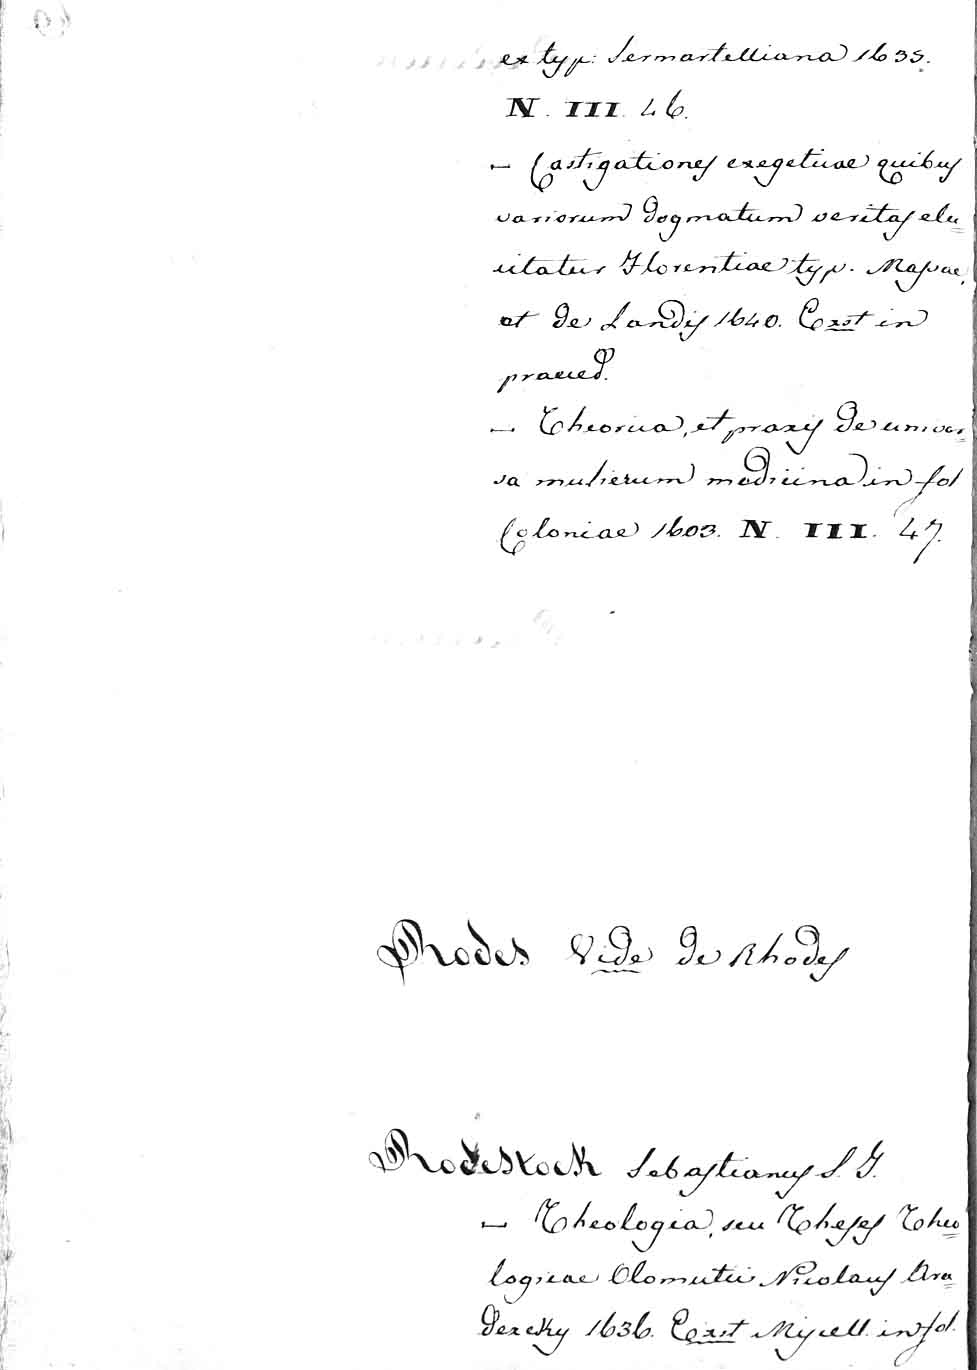 ex typ: Sermartelliana 1635.
N. III. 46.
— Castigationes exegeticae quibus
variorum dogmatum veritas elu=
citatur Florentiae typ. Massae,
et de Landis 1640. Exst in
praeced.
— Theorica, et praxis de univer=
sa mulierum medicina in fol
Coloniae 1603. N. III. 47.
Rodes Vide de Rhodes
Rodestock Sebastianus S. J.
— Theologia, seu Theses Theo=
logicae Olomutii Nicolaus Hra=
deczky 1636. Exst Miscell. in fol.